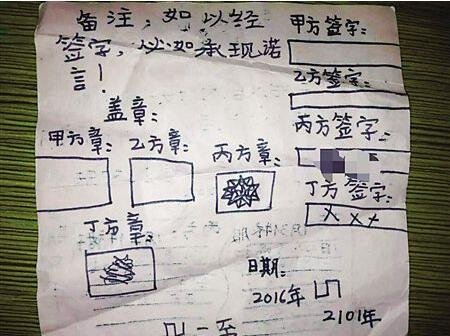 备注：如以经
签字，以如承现诺
言！
盖章：
甲方签字：
乙方签字：
丙方签字：
丁方签字：
xxx
甲方章：
乙方章：
丙方章：
丁方章：
日期：
2016年
2101年
一至